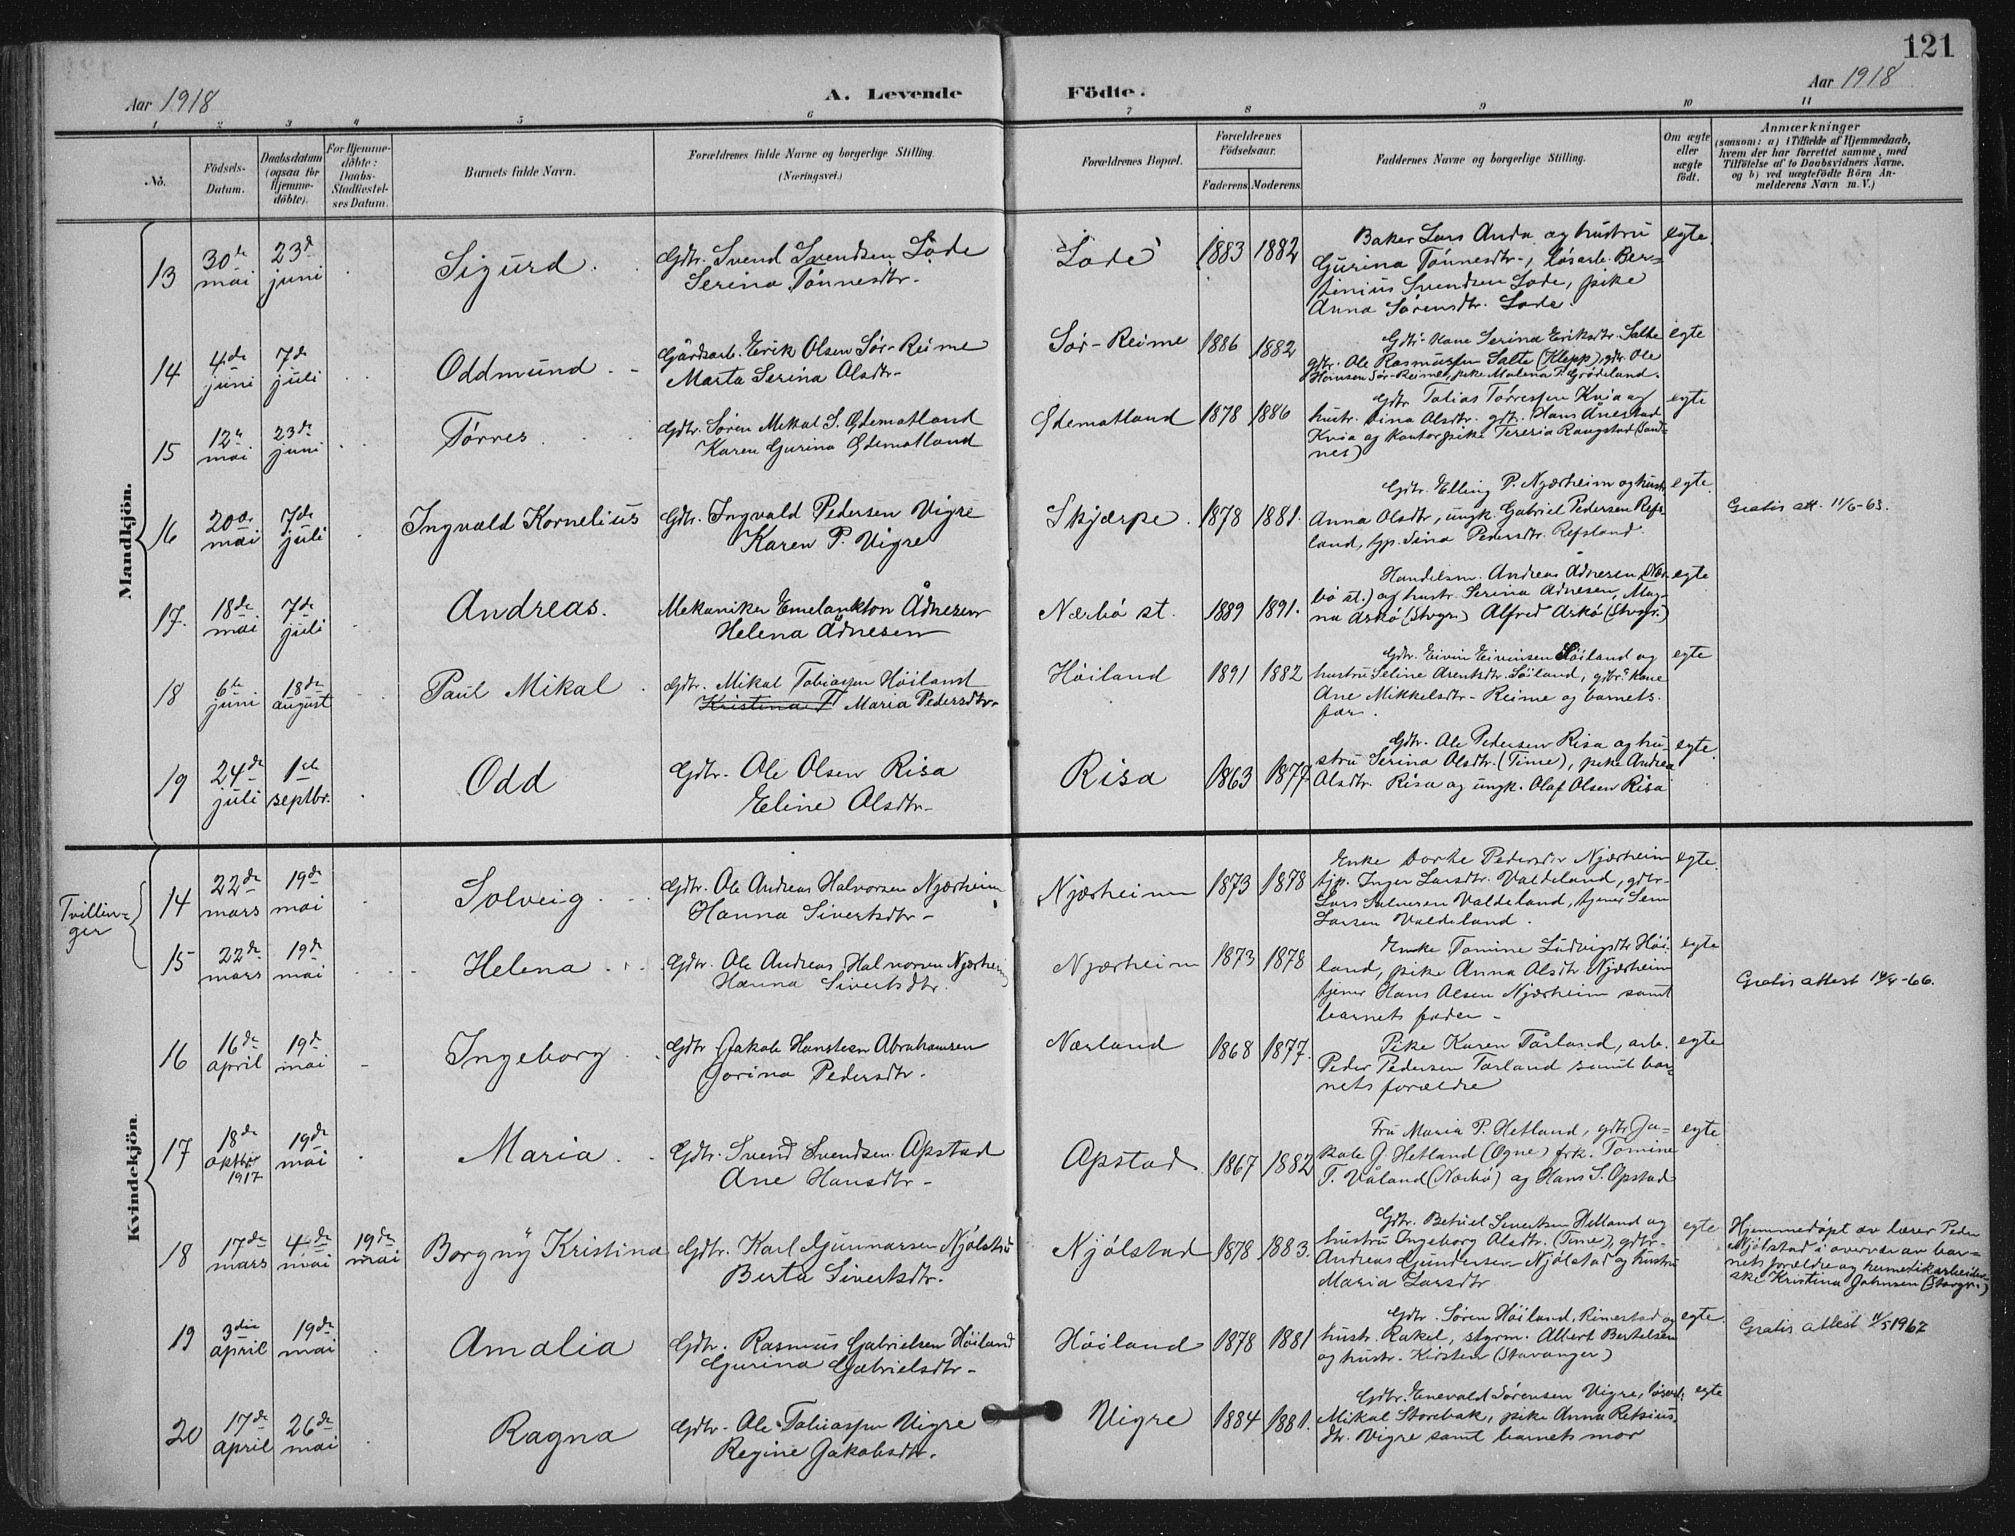 121
Aar 1918
A. Levende
Födte.
Aar 1918
1 2 3 4 5 6 7 8 9 10 11
No.
Födsels-
Datum.
Daabsdatum
(ogsaa for
Hjemme-
döbte).
For Hjemme-
döbte:
Daabs-
Stadfæstel-
ses Datum.
Barnets fulde Navn.
Forældrenes fulde Navne og borgerlige Stilling.
(Næringsvei.)
Forældrenes Bopæl.
Forældrenes
Födselsaar.
Faderens. Moderens.
Faddernes Navne og borgerlige Stilling.
Om ægte
eller
uægte
födt.
Anmærkninger
(saasom: a) i Tilfælde af Hjemmedaab,
hvem der har forrettet samme, med
Tilföielse af to Daabsvidners Navne.
og b) ved uægtefödte Börn An-
melderens Navn m. V.)
Mandkjön.
13
30de
mai
23de
juni
Sigurd
Gdtr. Svend Svendsen Lode
Serina Tönnesdtr.
Lode
1883 1882
Baker Lars Anda og hustru
Gurina Tönnesdtr., lösarb. Ber-
tinius Svendsen Lode, pike
Anna Sörensdtr. Lode.
egte
14
4de
juni
7de
juli
Oddmund
Gårdsarb. Erik Olsen Sör-Reime
Marta Serina Olsdtr.
Sör-Reime
1886 1882
Gdtr. kone Serina Eriksdtr. Salte
gdtr. Ole Rasmussen Salte (Klepp), gdtr. Ole
Hansen Sör-Reime, pike Malena T. Grödeland.
egte
15
12te
mai
23de
juni
Törres
Gdtr. Sören Mikal S. Ödemotland
Karen Gurina Ödemotland
Ödemotland
1878 1886
Gdtr. Tobias Törressen Kvia og
hustr. Dina Olsdtr. gdtr. Hans Ånestad
Kvia og kontorpike Teresia Raugstad (Sand-
nes)
egte
16
20de
mai
7de
juli
Ingvald Kornelius
Gdtr. Ingvald Pedersen Vigre
Karen P. Vigre
Skjærpe
1878 1881.
Gdtr. Elling P. Njærheim og hustr.
Anna Olsdtr., ungk. Gabriel Pedersen Refs-
land, tjp. Sina Pedersdtr. Refsland.
egte
Gratis att. 11/6-63.
17.
18de
mai
7de
juli
Andreas.
Mekaniker Emelankton Ådnesen
Helena Ådnesen
Nærbö st.
1889 1891.
Handelsm. Andreas Ådnesen (Nær-
bö st.) og hustr. Serina Ådnesen, Mag-
na Askö (Stvgr.) Alfred Askö (Stvgr.)
egte
18
6te
juni
18de
august
Paul Mikal
Gdtr. Mikal Tobiassen Höiland
Kristina T Maria Pedersdtr.
Höiland
1891 1882
Gdtr. Eivin Eivinsen Söiland og
hustru Seline Arentsdtr. Söiland, gdbr. kone
Ane Mikkelsdtr. Reime og barnets
far.
egte
19
24de
juli
1ste
septbr.
Odd
Gdtr. Ole Olsen Risa
Eline Olsdtr.
Risa
1863 1877
Gdtr. Ole Pedersen Risa og hu-
stru Serina Olsdtr. (Time), pike Andrea
Olsdtr. Risa og ungk. Olaf Olsen Risa
egte.
Tvillin-
ger
Kvindekjön.
14
22de
mars
19de
mai
Solveig
Gdtr. Ole Andreas Halvorsen Njærheim
Hanna Sivertsdtr.
Njærheim
1873 1878
Enke Dorte Pedersdtr Njærheim
tjp. Inger Larsdtr. Valdeland, gdtr.
Lars Salvesen Valdeland, tjener Sem
Larsen Valdeland.
egte.
15
22de
mars
19de
mai
Helena
Gdtr. Ole Andreas Halvorsen Njærheim
Hanna Sivertsdtr.
Njærheim
1873 1878
Enke Tomine Ludvigsdtr. Höi-
land, pike Anna Olsdtr. Njærheim
tjener Hans Olsen Njærheim samt
barnets fader.
egte
Gratis attest 14/4-66.
16
16de
april
19de
mai
Ingeborg
Gdtr. Jakob Hansteen Abrahamsen
Jorina Pedersdtr.
Nærland
1868 1877.
Pike Karen Tårland, arb.
Peder Pedersen Tårland samt bar-
nets forældre
egte
17
18de
oktbr.
1917
19de
mai
Maria
Gdtr. Svend Svendsen Opstad
Ane Hansdtr.
Opstad
1867 1882
Fru Maria P. Hetland, gdtr. Ja-
kob J. Hetland (Ogne) frk. Tomine
T. Våland (Nærbö) og Hans S. Opstad
egte
18
17de
mars
4de
mai
19de
mai
Borgny Kristina
Gdtr. Karl Gunnarsen Njölstad
Berta Sivertsdtr.
Njölstad
1878 1883.
Gdtr. Betuel Sivertsen Helland og
hustru Ingeborg Olsdtr. (Time), gdtr.
Andreas Gundersen Njölstad og hustru
Maria Larsdtr.
egte
Hjemmedöpt av lærer Peder
Njölstad i overvær av bar-
nets forældre og hermetikarbeider-
ske Kristina Johnsen (Stavgr.)
19
3die
april
19de
mai
Amalia
Gdtr. Rasmus Gabrielsen Höiland
Gurina Gabrielsdtr.
Höiland
1878 1881
Gdtr. Sören Höiland, Rimestad og
hustr. Rakel, styrm. Albert Bertelsen
og hustr. Kirsten (Stavanger)
egte.
Gratis attest 11/5 1967
20
17de
april
26de
mai
Ragna
Gdtr. Ole Tobiassen Vigre
Regine Jakobsdtr.
Vigre
1884 1881.
Gdtr. Enevald Sörensen Vigre,
Mikal Storebak, pike Anna Retsius-
dtr. Vigre samt barnets mor
egte